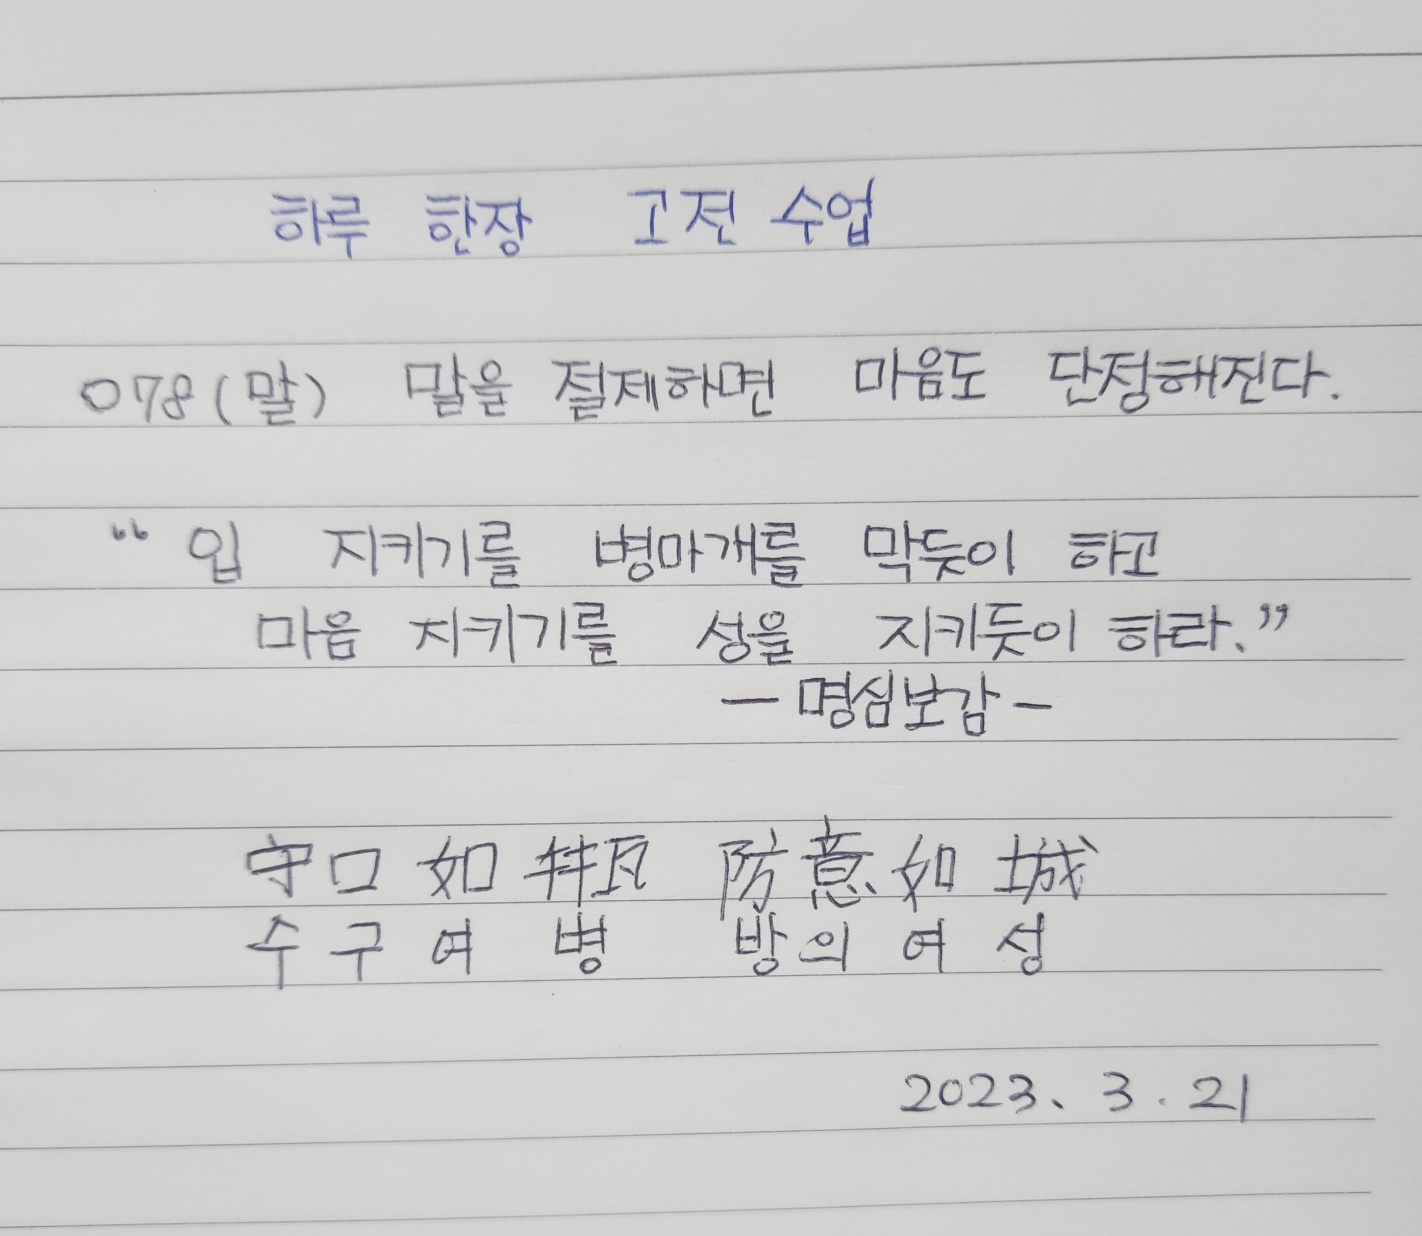 하루 한장 고전 수업
078(말) 말을 절제하면 마음도 단정해진다.
“입 지키기를 병마개를 막듯이 하고
마음 지키기를 성을 지키듯이 하라.”
- 명심보감 -
守口如甁 防意如城
수구여병 방의여성
2023. 3. 21